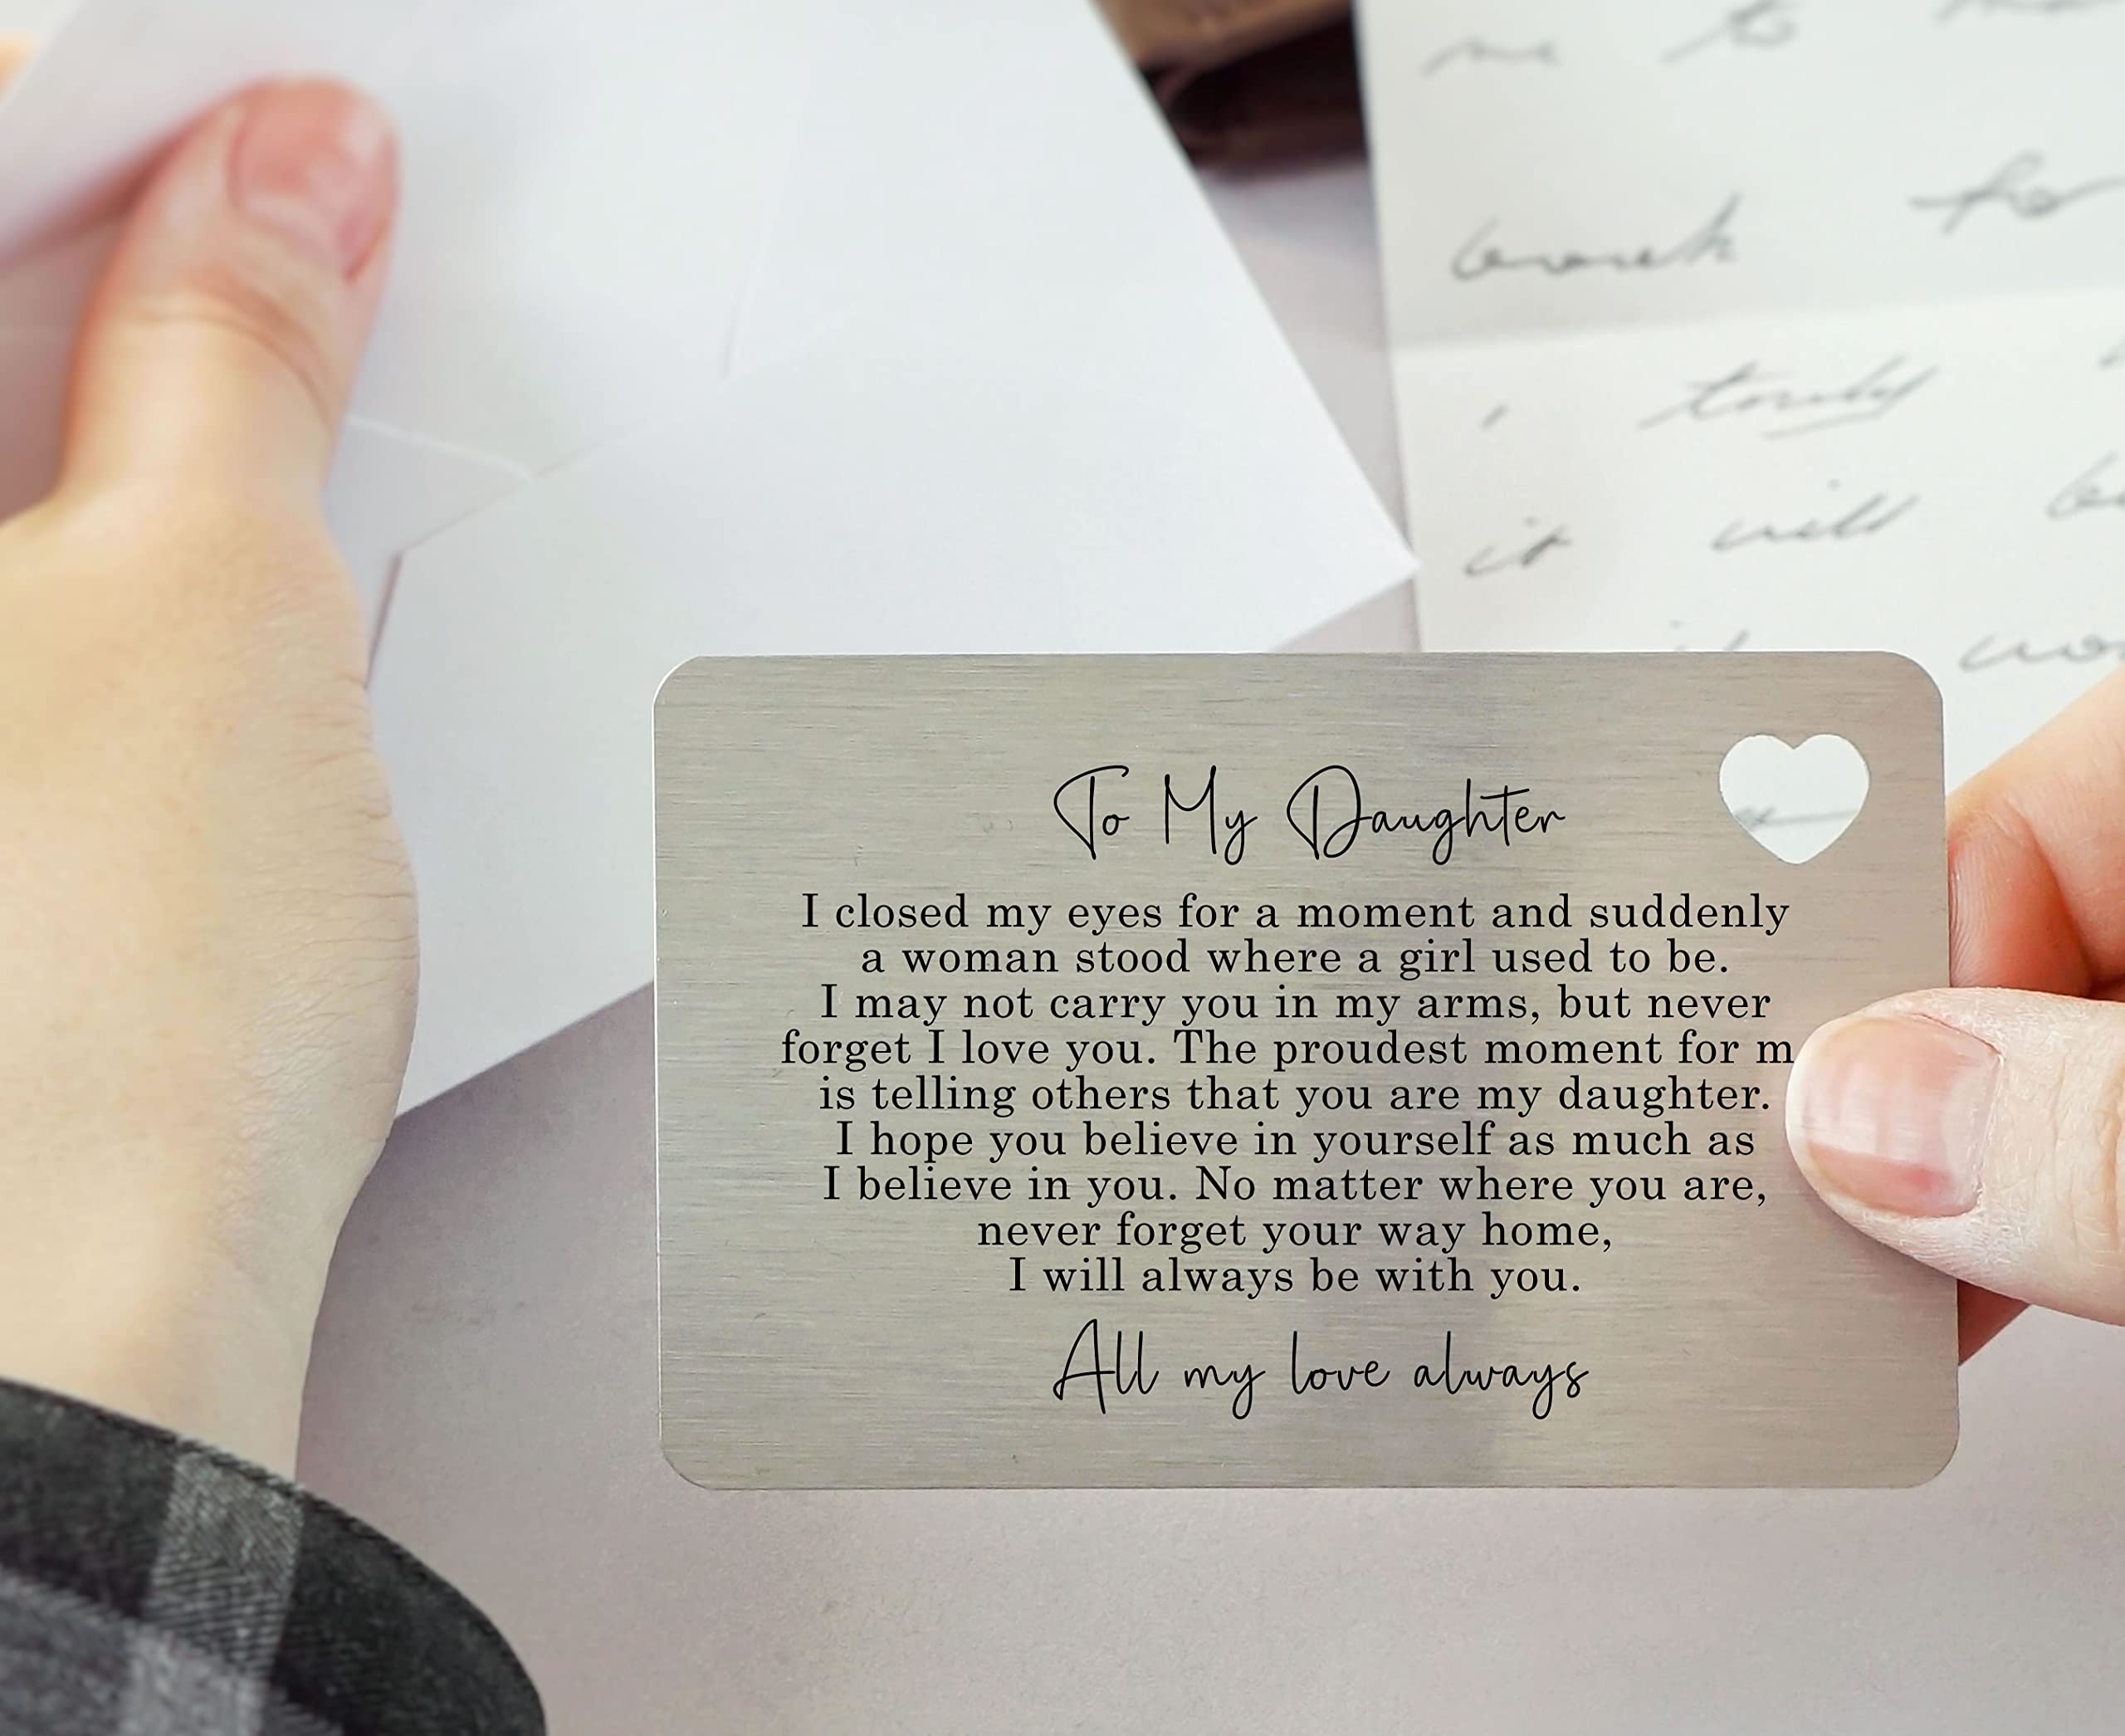 to
work for
I truly
it will
To My Daughter
I closed my eyes for a moment and suddenly
a woman stood where a girl used to be.
I may not carry you in my arms, but never
forget I love you. The proudest moment for m
is telling others that you are my daughter.
I hope you believe in yourself as much as
I believe in you. No matter where you are,
never forget your way home,
I will always be with you.
All my love always